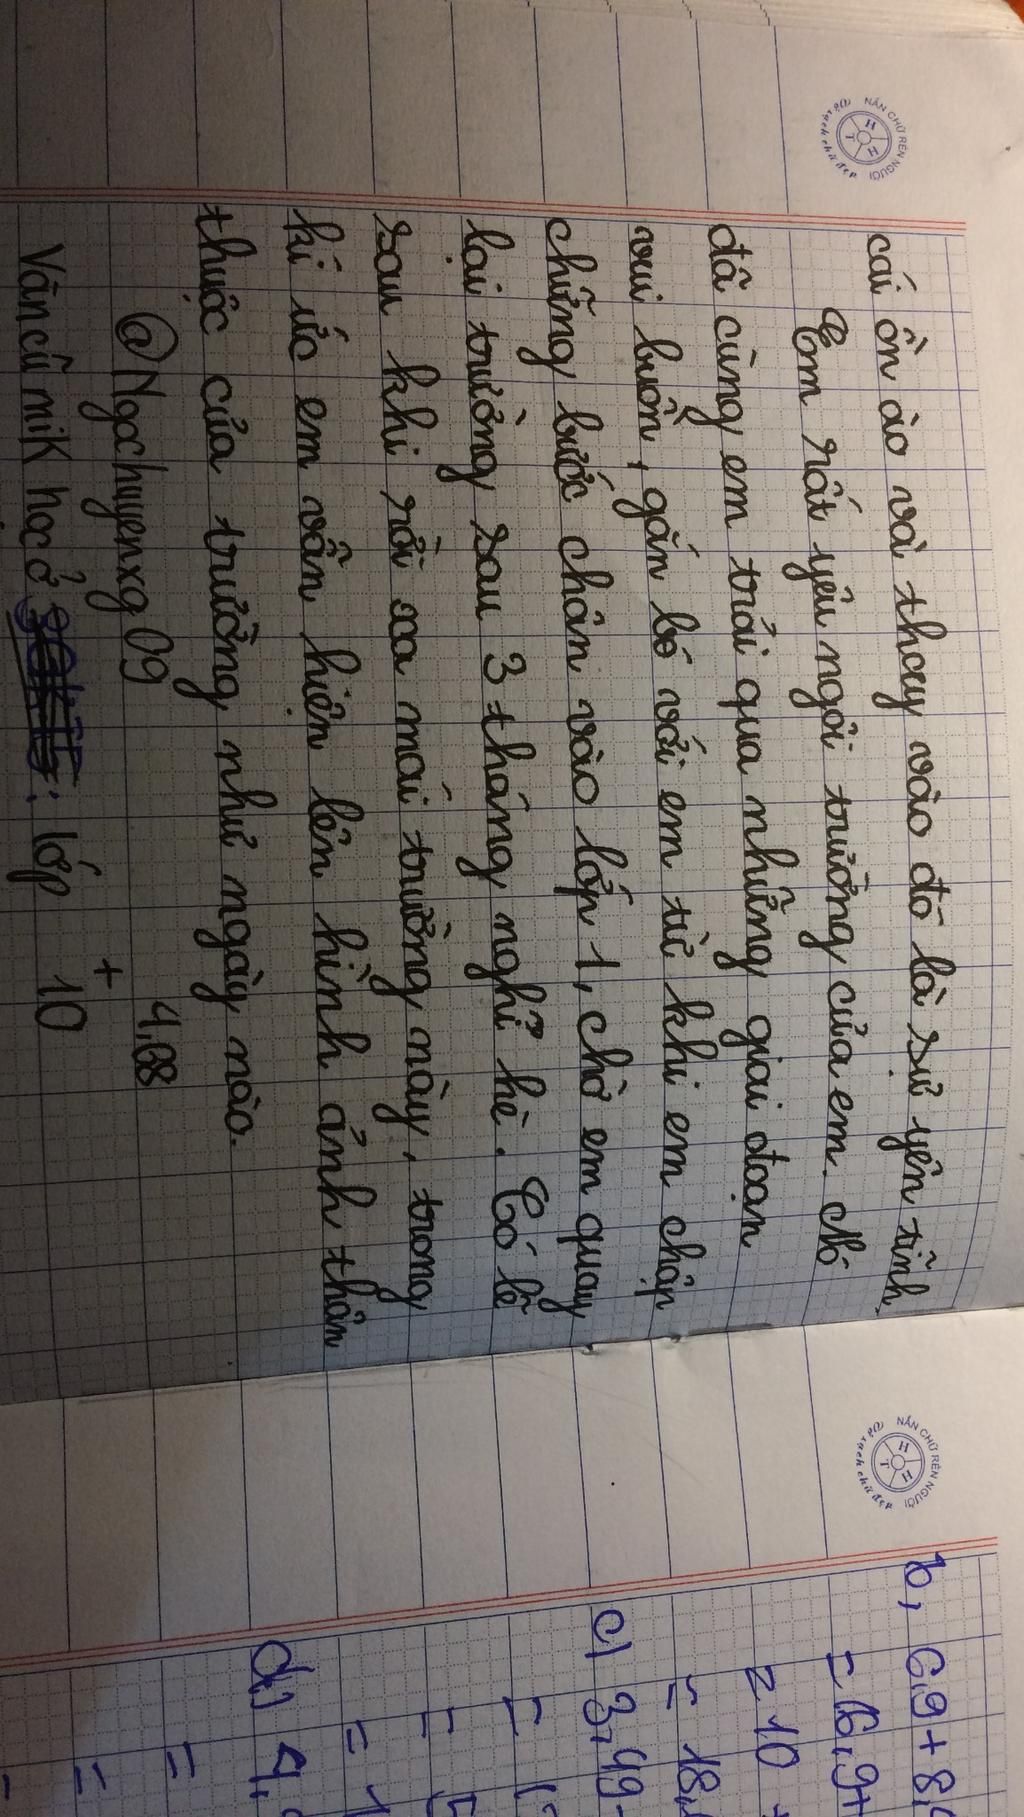 NẮN CHỮ RÈN NGƯỜI
H
T H
cái ồn ào và thay vào đó là sự yên tĩnh.
Em rất yêu ngôi trường của em. Nó
đã cùng em trải qua những giai đoạn
vui buồn, gắn bó với em từ khi em chập
chững bước chân vào lớp 1, chờ em quay
lại trường sau 3 tháng nghỉ hè. Có lẽ
sau khi rời xa mái trường này, trong
kí ức em vẫn hiện lên hình ảnh thân
thuộc của trường như ngày nào.
@Ngochuyenxg09
Văn cũ mik học ở : lớp 10
+
NẮN CHỮ RÈN NGƯỜI
H
T H
b, 6,9 + 8,
= (6,9+
= 10 +
= 18,
c) 3,49
=
=
= 1
d) 4,
=
=